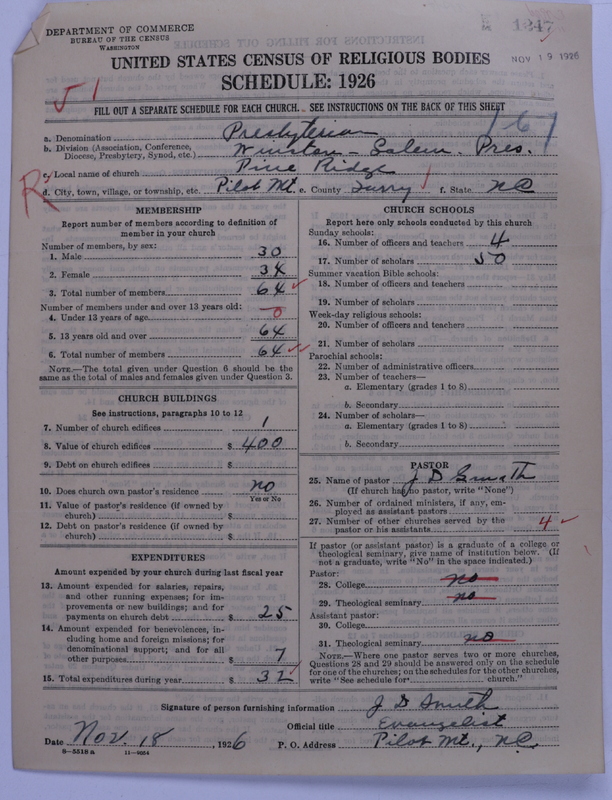 DEPARTMENT OF COMMERCE
BUREAU OF THE CENSUS
WASHINGTON
1247
NOV 19 1926
UNITED STATES CENSUS OF RELIGIOUS BODIES
SCHEDULE: 1926
FILL OUT A SEPARATE SCHEDULE FOR EACH CHURCH. SEE INSTRUCTIONS ON THE BACK OF THIS SHEET
a. Denomination Presbyterian
b. Division (Association, Conference, Diocese, Presbytery, Synod, etc.) Winston-Salem. Pres.
c. Local name of church Pine Ridge
d. City, town, village, or township, etc. Pilot Mt. e. County Surry f. State NC
MEMBERSHIP
Report number of members according to definition of
member in your church
Number of members, by sex:
1. Male 30
2. Female 34
3. Total number of members 64
Number of members under and over 13 years old:
4. Under 13 years of age 0
5. 13 years old and over 64
6. Total number of members 64
NOTE.—The total given under Question 6 should be the
same as the total of males and females given under Question 3.
CHURCH BUILDINGS
See instructions, paragraphs 10 to 12
7. Number of church edifices 1
8. Value of church edifices $ 400
9. Debt on church edifices $
10. Does church own pastor's residence no
Yes or No
11. Value of pastor's residence (if owned by
church) $
12. Debt on pastor's residence (if owned by
church) $
EXPENDITURES
Amount expended by your church during last fiscal year
13. Amount expended for salaries, repairs,
and other running expenses; for im-
provements or new buildings; and for
payments on church debt $ 25
14. Amount expended for benevolences, in-
cluding home and foreign missions; for
denominational support; and for all
other purposes $ 7
15. Total expenditures during year $ 32
CHURCH SCHOOLS
Report here only schools conducted by this church
Sunday schools:
16. Number of officers and teachers 4
17. Number of scholars 50
Summer vacation Bible schools:
18. Number of officers and teachers
19. Number of scholars
Week-day religious schools:
20. Number of officers and teachers
21. Number of scholars
Parochial schools:
22. Number of administrative officers
23. Number of teachers—
a. Elementary (grades 1 to 8)
b. Secondary
24. Number of scholars—
a. Elementary (grades 1 to 8)
b. Secondary
PASTOR
25. Name of pastor J D Smith
(If church has no pastor, write "None")
26. Number of ordained ministers, if any, em-
ployed as assistant pastors
27. Number of other churches served by the
pastor or his assistants 4
If pastor (or assistant pastor) is a graduate of a college or
theological seminary, give name of institution below. (If
not a graduate, write "No" in the space indicated.)
Pastor:
28. College no
29. Theological seminary no
Assistant pastor:
30. College
31. Theological seminary no
NOTE.—Where one pastor serves two or more churches,
Questions 28 and 29 should be answered only on the schedule
for one of the churches; on the schedules for the other churches,
write "See schedule for church."
Signature of person furnishing information J D Smith
Official title Evangelist
Date Nov. 18, 1926 P. O. Address Pilot Mt., NC.
8—5518 a 11—9664